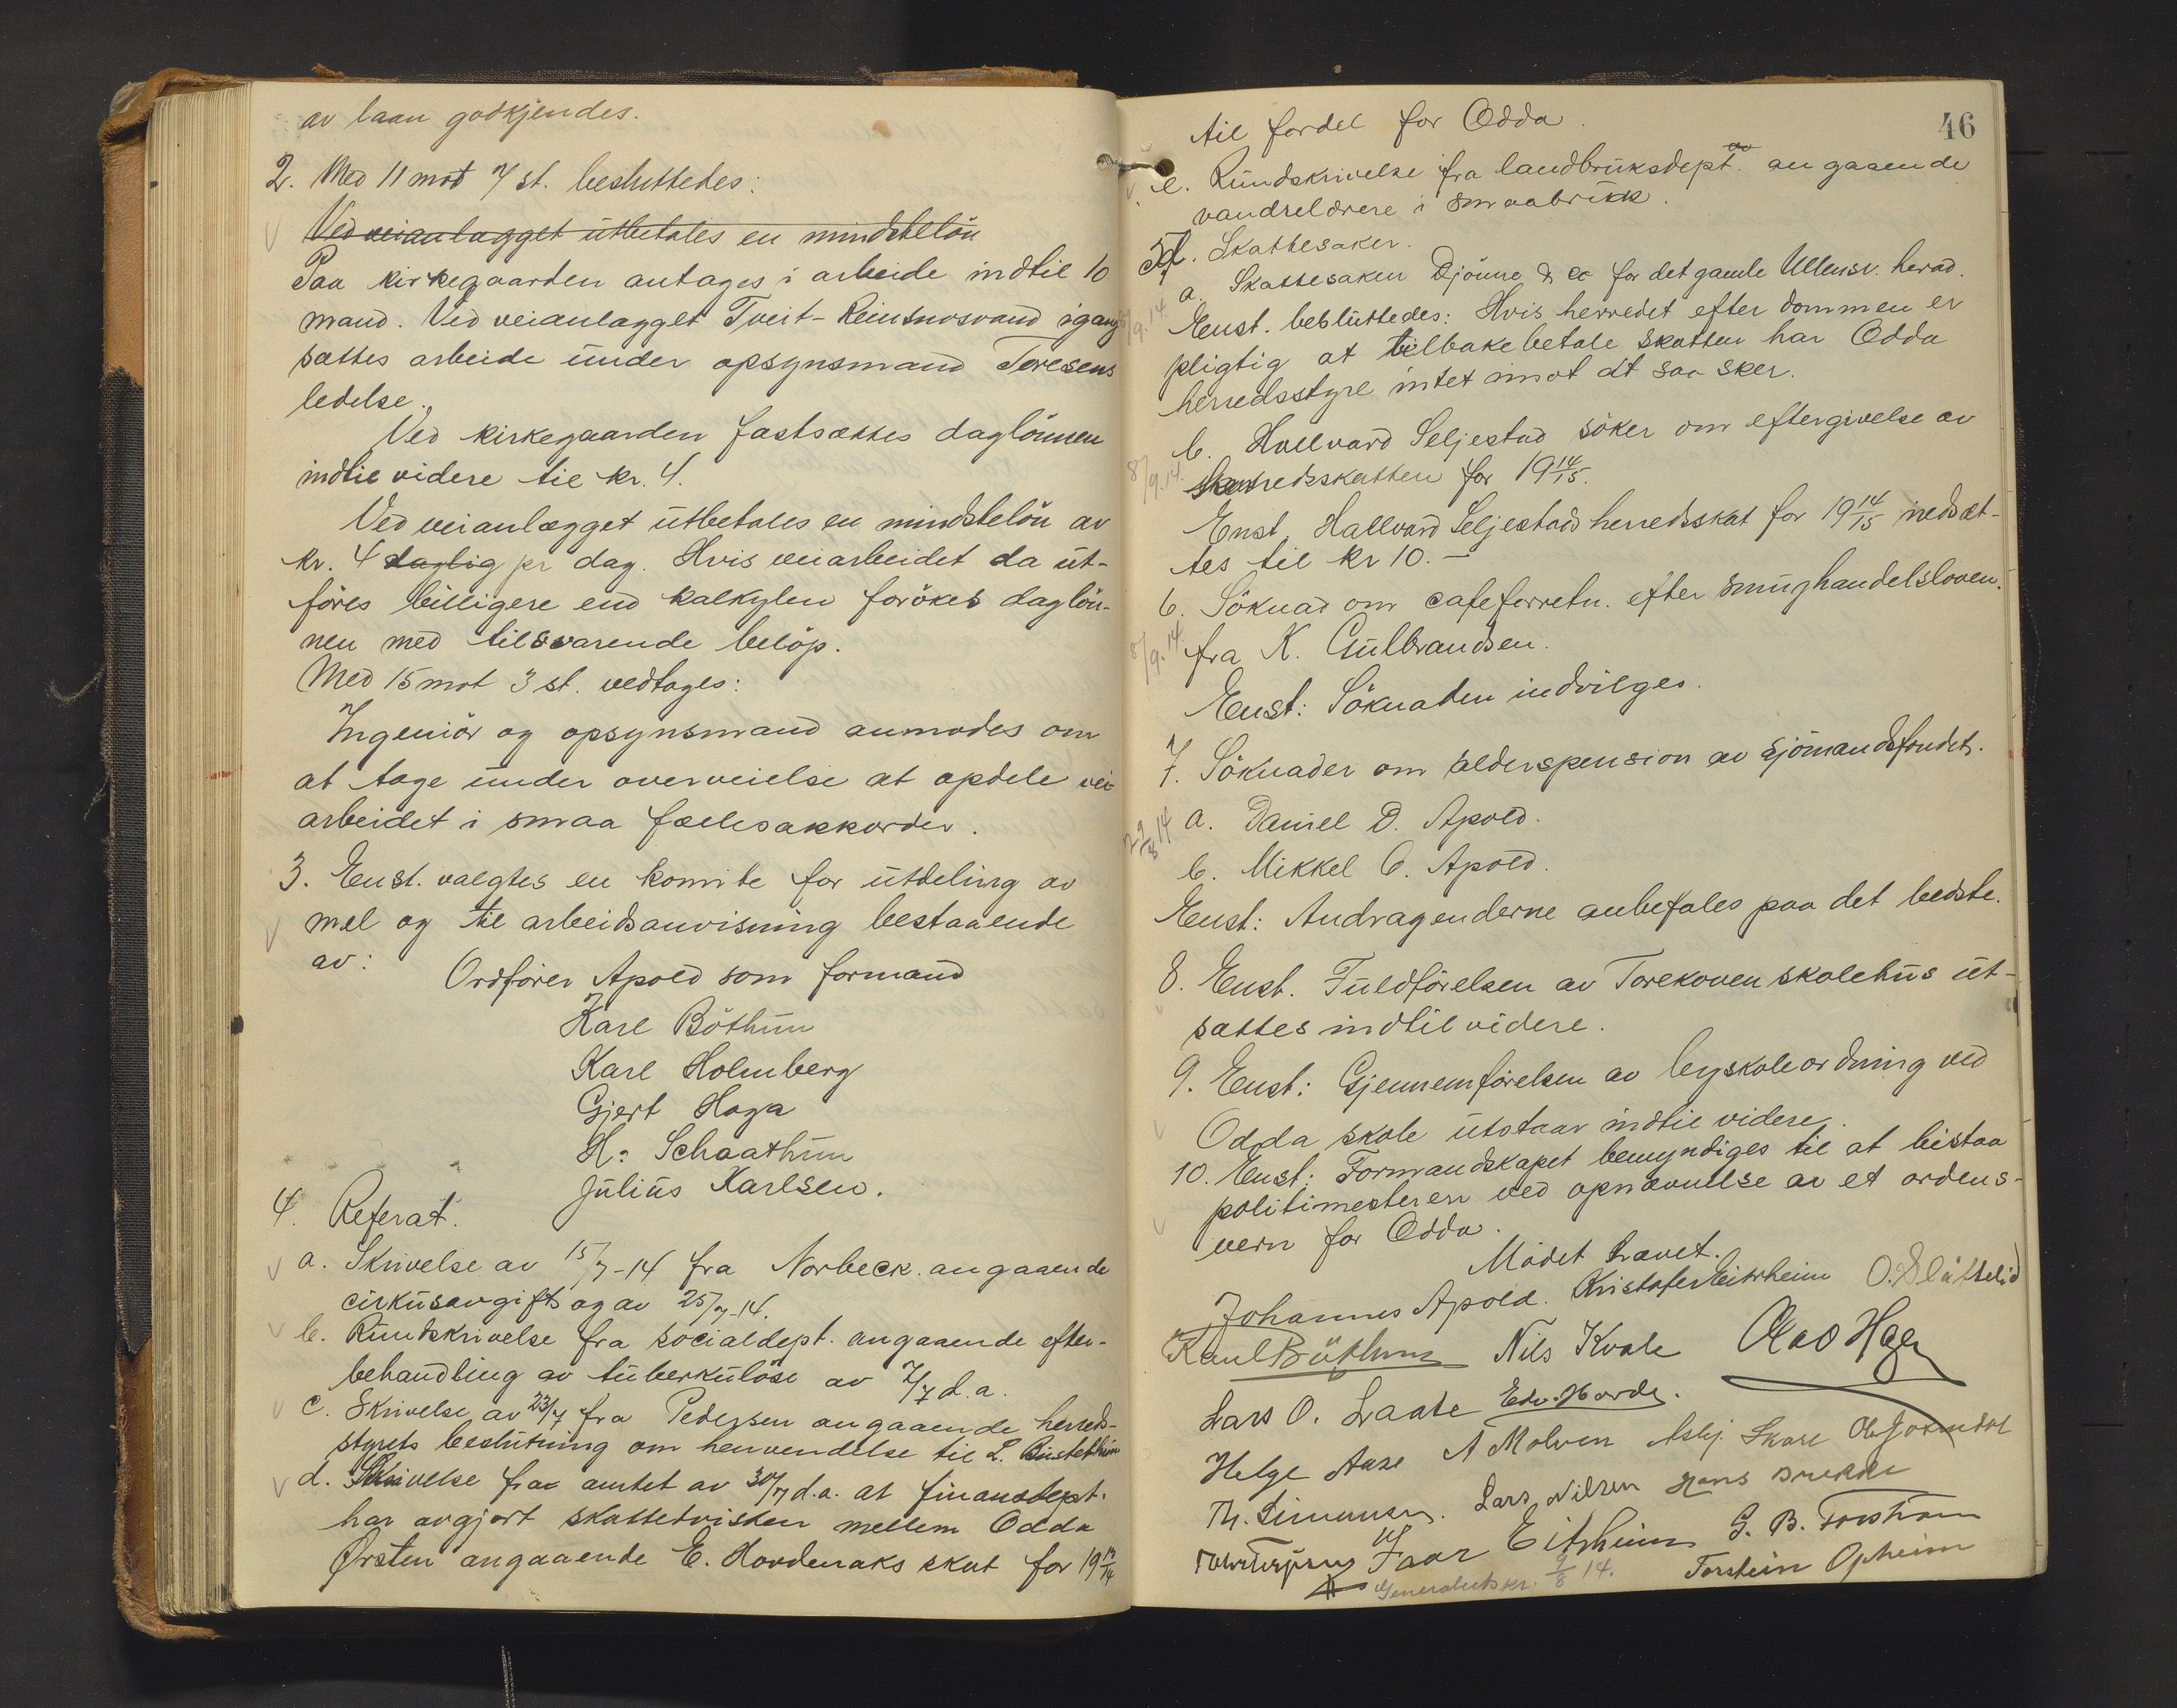 av laan godkjendes.
2. Med 11 mot 7 st. besluttedes:
Ved veianlægget utbetales en mindsteløn
Paa kirkegaarden antages i arbeide indtil 10
mand. Ved veianlægget Tveit-Reinsnosvand igang
sættes arbeide under opsynsmand Toresens
ledelse.
Ved kirkegaarden fastsættes daglønnen
indtil videre til kr. 4.
Ved veianlægget utbetales en mindsteløn av
kr. 4 daglig pr dag. Hvis veiarbeidet da ut-
føres billigere end kalkylen forøkes dagløn-
nen med tilsvarende beløp.
Med 15 mot 3 st. vedtages:
Ingeniør og opsynsmand anmodes om
at tage under overveielse at opdele vei
arbeidet i smaa fællesakkorder.
3. Enst. valgtes en komite for utdeling av
mel og til arbeidsanvisning bestaaende
av:
Ordfører Apold som formand
Karl Bøthun
Karl Holmberg
Gjert Haga
H. Schaathun
Julius Karlsen.
4. Referat.
a. Skrivelse av 15/7-14 fra Norbeck. angaaende
cirkusavgift og av 25/7-14.
b. Rundskrivelse fra socialdept. angaaende efter-
behandling av tuberkuløse av 7/7 d.a.
c. Skrivelse av 23/7 fra Pedersen angaaende herreds-
styrets beslutning om henvendelse til L.
d. Skrivelse fra amtet av 30/7 d.a. at finansdept.
har avgjort skattetvisten mellem Odda
Ørsten angaaende E. Hovdenaks skat for 19 13/14
46
til fordel for Odda.
e. Rundskrivelse fra landbruksdept. angaaende
vandrelærere i smaabruk.
5. Skattesaker.
a. Skattesaken Djønne & co for det gamle Ullensv. herad.
Enst. besluttedes: Hvis herredet efter dommen er
pligtig at tilbakebetale skatten har Odda
herredsstyre intet imot at saa sker.
8/9.14.
b. Hallvard Seljestad søker om eftergivelse av
herredsskatten for 19 14/15.
8/9.14.
Enst. Hallvard Seljestad herredsskat for 19 14/15 nedsæt-
tes til kr 10.—
6. Søknad om cafeforretn. efter smughandelsloven.
fra K. Gulbrandsen.
8/9.14.
Enst: Søknaden indvilges.
7. Søknader om alderspension av sjømandsfondet.
a. Daniel D. Apold.
29/8 14
b. Mikkel O. Apold.
Enst: Andragenderne anbefales paa det bedste.
8. Enst. Fuldførelsen av Torekoven skolehus ut-
sættes indtil videre.
9. Enst: Gjennemførelsen av byskoleordning ved
Odda skole utstaar indtil videre.
10. Enst: Formandskapet bemyndiges til at bistaa
politimesteren ved opnævnelse av et ordens-
vern for Odda.
Mødet hævet.
Johannes Apold. Kristofer Eitrheim O. Slåttelid
Karl Bøthun Nils Kvale Olav Hagen
Lars O. Laate Edv. Horde.
Helge Aase N Molven Asbj. Skare
Th. Simonsen. Lars Nilsen Hans
Ivar Eitrheim G. B. Forstrøm
Torstein Opheim
9/8 14.